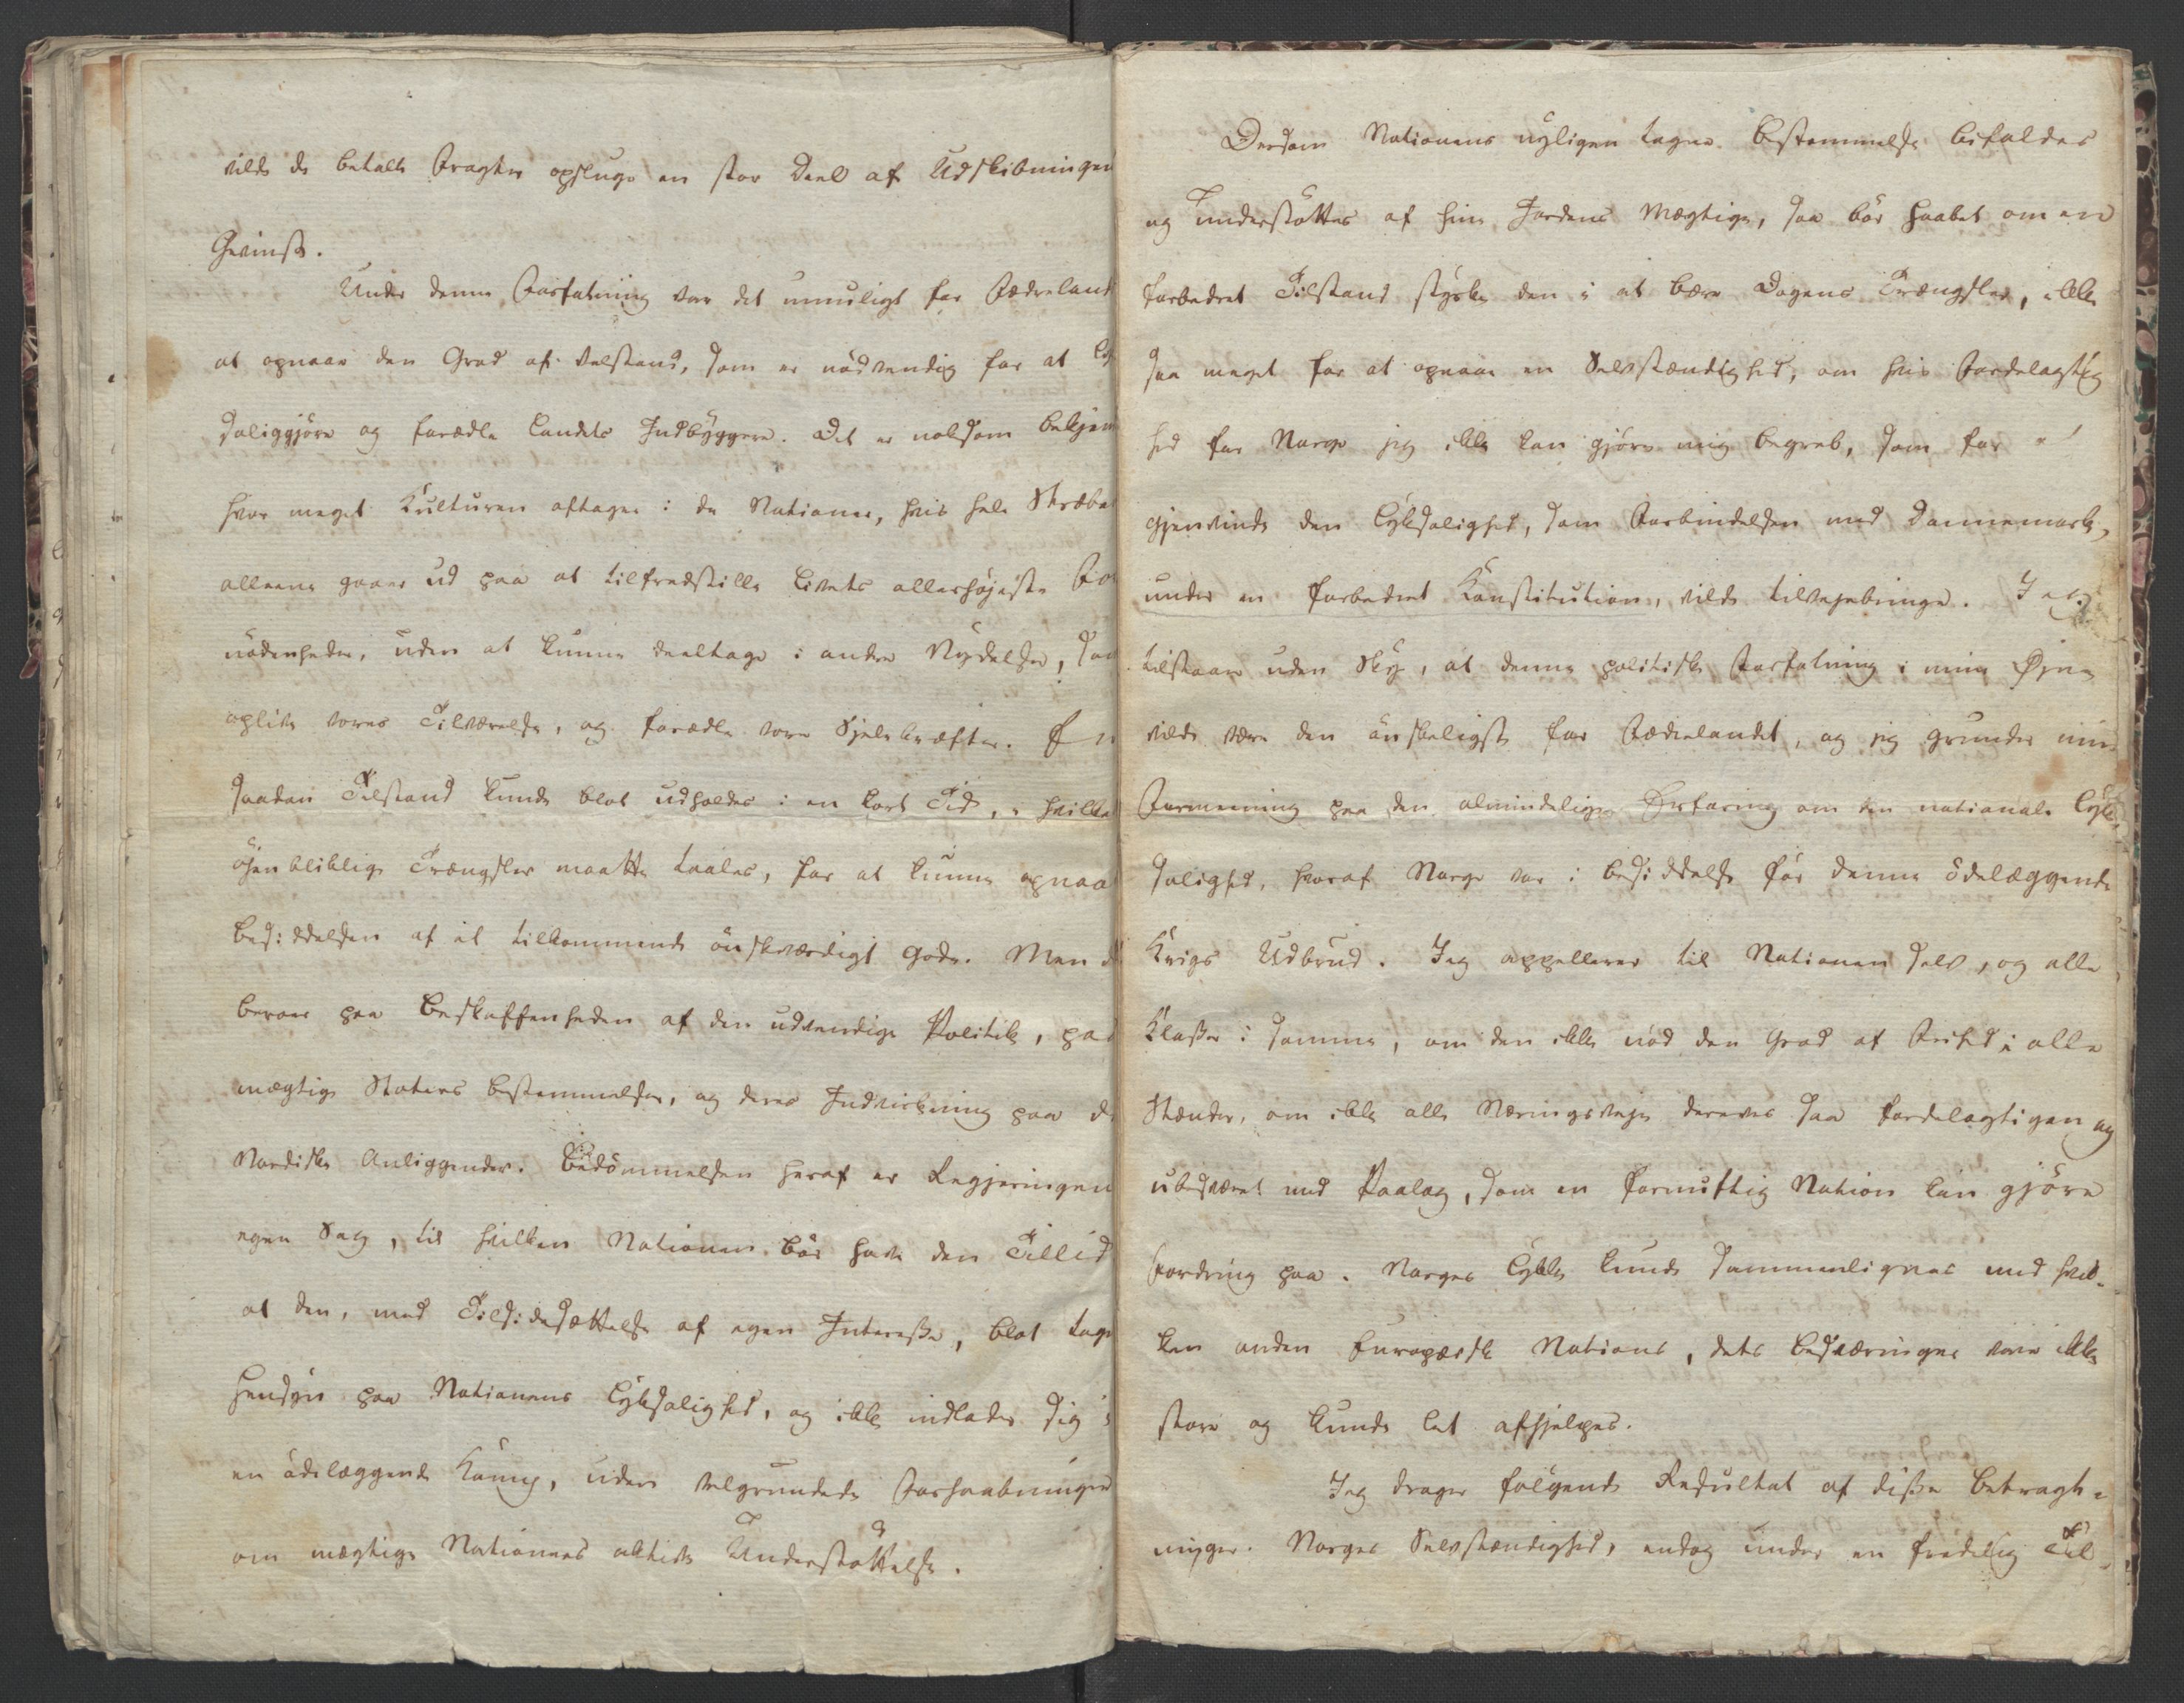 vilde de betalte Fragter opsluge en stor Deel af Udskibningen
Gevinst.
Under denne Forfatning var det umuligt for Fædreland
at opnaae den Grad af Velstand, som er nödvendig for at lyk
saliggjöre og forædle Landets Indbyggere. Det er noksom bekjen
hvor meget Kulturen aftager i de Nationer, hvis hele Stræben
alleene gaaer ud paa at tilfredsstille Livets allerhöjeste For
nödenheder, uden at kunne deeltage i andre Nydelser, som
oplive vores Tilværelse, og forædle vore Sjelekræfter. En
saadan Tilstand kunde blot udholdes i en kort Tid, i hvilken
öjenbliklige Trængsler maatte taales, for at kunne opnaae
Besiddelsen af et tilkommende önskværdigt Gode. Men d
beroer paa Beskaffenheden af den udvendige Politik, paa
mægtige Staters Bestemmelser, og deres Indvirkning paa de
Nordiske Anliggender. Bedömmelsen heraf er Regjeringen
egen Sag, til hvilken Nationen bör have den Tillid
at den, med Tilsidesættelse af egen Interesse, blot tager
Hensyn paa Nationens Lyksalighed, og ikke indlader sig i
en ödelæggende Kamp, uden velgrundede Forhaabninger
om mægtige Nationers aktive Understöttelse.
Dersom Nationens nyligen tagne Bestemmelse bifaldes
og understöttes af hine Jordens Mægtige, saa bör Haabet om en
forbedret Tilstand styrke den i at bære Dagens Trængsler, ikke
saa meget for at opnaae en Selvstændighed, om hvis Fordelagtig
hed for Norge jeg ikke kan gjöre mig Begreb, som for at
gjenvinde den Lyksalighed, som Forbindelsen med Dannemark,
under en forbedret Konstitution, vilde tilvejebringe. Jeg
tilstaaer uden Sky, at denne politiske Forfatning i mine Öjne
vilde være den önskeligste for Fædrelandet, og jeg grunder min
Formeening paa den almindelige Erfaring om den nationale Lyk-
salighed, hvoraf Norge var i Besiddelse för denne ödelæggende
Krigs Udbrud. Jeg appellerer til Nationen selv, og alle
Klasser i samme, om den ikke nöd den Grad af Frihed i alle
Stænder, om ikke alle Næringsveje dreves saa fordelagtigen og
ubesværet med Paalæg, som en fornuftig Nation kan gjöre
Fordring paa. Norges Lykke kunde sammenlignes med hvil-
ken anden Europæisk Nations, dets Besværinger vare ikke
store og kunde let afhjelpes.
Jeg drager fölgende Resultat af disse Betragt-
ninger. Norges Selvstændighed, endog under en fredelig Til-